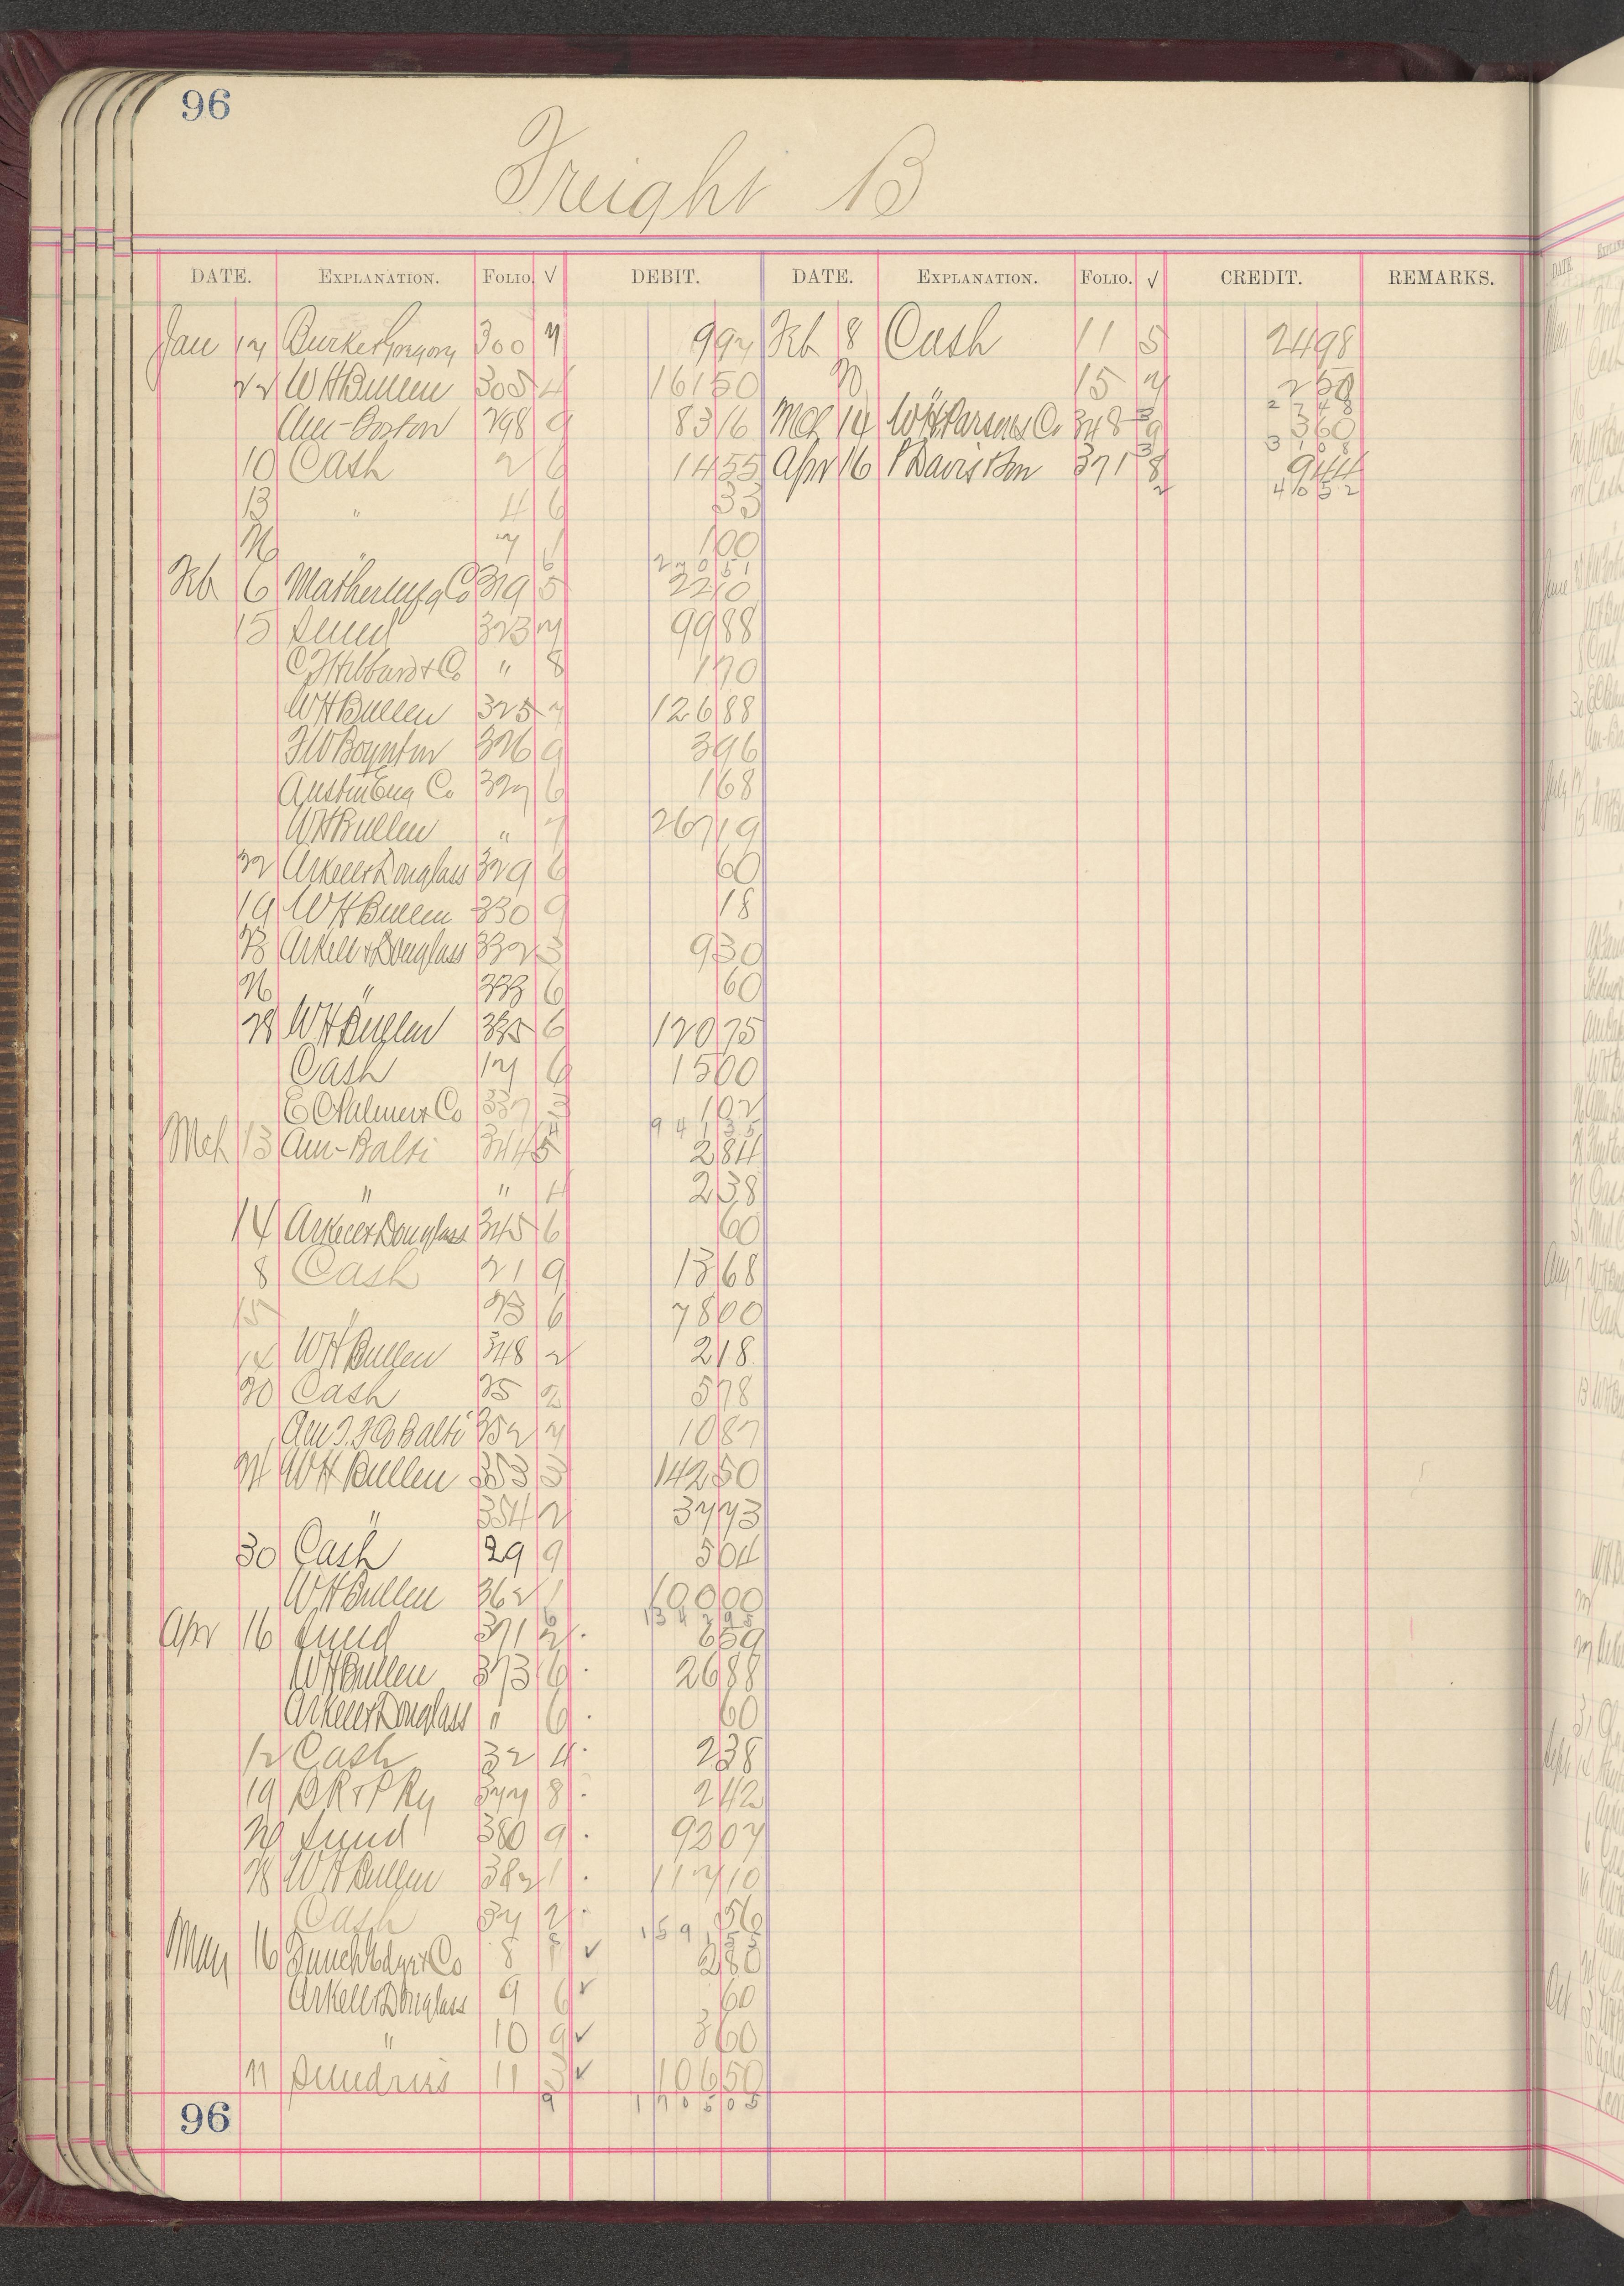 96
Freight B
DATE. EXPLANATION. FOLIO. √ DEBIT. DATE. EXPLANATION. FOLIO. √ CREDIT. REMARKS.
Jan 17 300 7 997 Feb 8 Cash 11 5 2498
22 WHBullen 305 4 16150 15 7
Am-Boston 298 9 8316 Mch 14 WHParsons Co 348 9 360
10 Cash 2 6 1455 Apr 16 Davis & Son 371 8 944
13 " 4 6 33 41052
7 1 100
27051
Feb 6 319 5 2210
15 Sund 323 7 9988
CHibbard & Co " 8 170
WHBullen 325 7 12688
Boynton 326 9 396
Austin Eng Co 327 6 168
WHBullen " 7 26719
22 Arkell & Douglass 329 6 60
19 WHBullen 330 9 18
23 Arkell & Douglass 332 3 930
26 " 333 6 60
28 WHBullen 335 6 12075
Cash 17 6 1500
Co 337 3 102
94135
Mch 13 Am-Balti 344 5 284
" " 4 238
14 Arkell & Douglass 345 6 60
8 Cash 21 9 1368
15 " 23 6 7800
14 WHBullen 348 2 218
20 Cash 25 2 578
Balti 352 7 1087
24 WHBullen 353 3 14250
" 354 2 3773
30 Cash 29 9 504
WHBullen 362 1 10000
134295
Apr 16 Sund 371 2 659
WHBullen 373 6 2688
Arkell & Douglass " 6 60
12 Cash 32 4 238
19 BR & P Ry 377 8 242
29 Sund 380 9 9307
28 WHBullen 382 1 11710
Cash 37 2 56
May 16 Co 8 1 √ 280
Arkell & Douglass 9 6 √ 60
" 10 9 √ 360
11 Sundries 11 3 √ 10650
9 170505
96